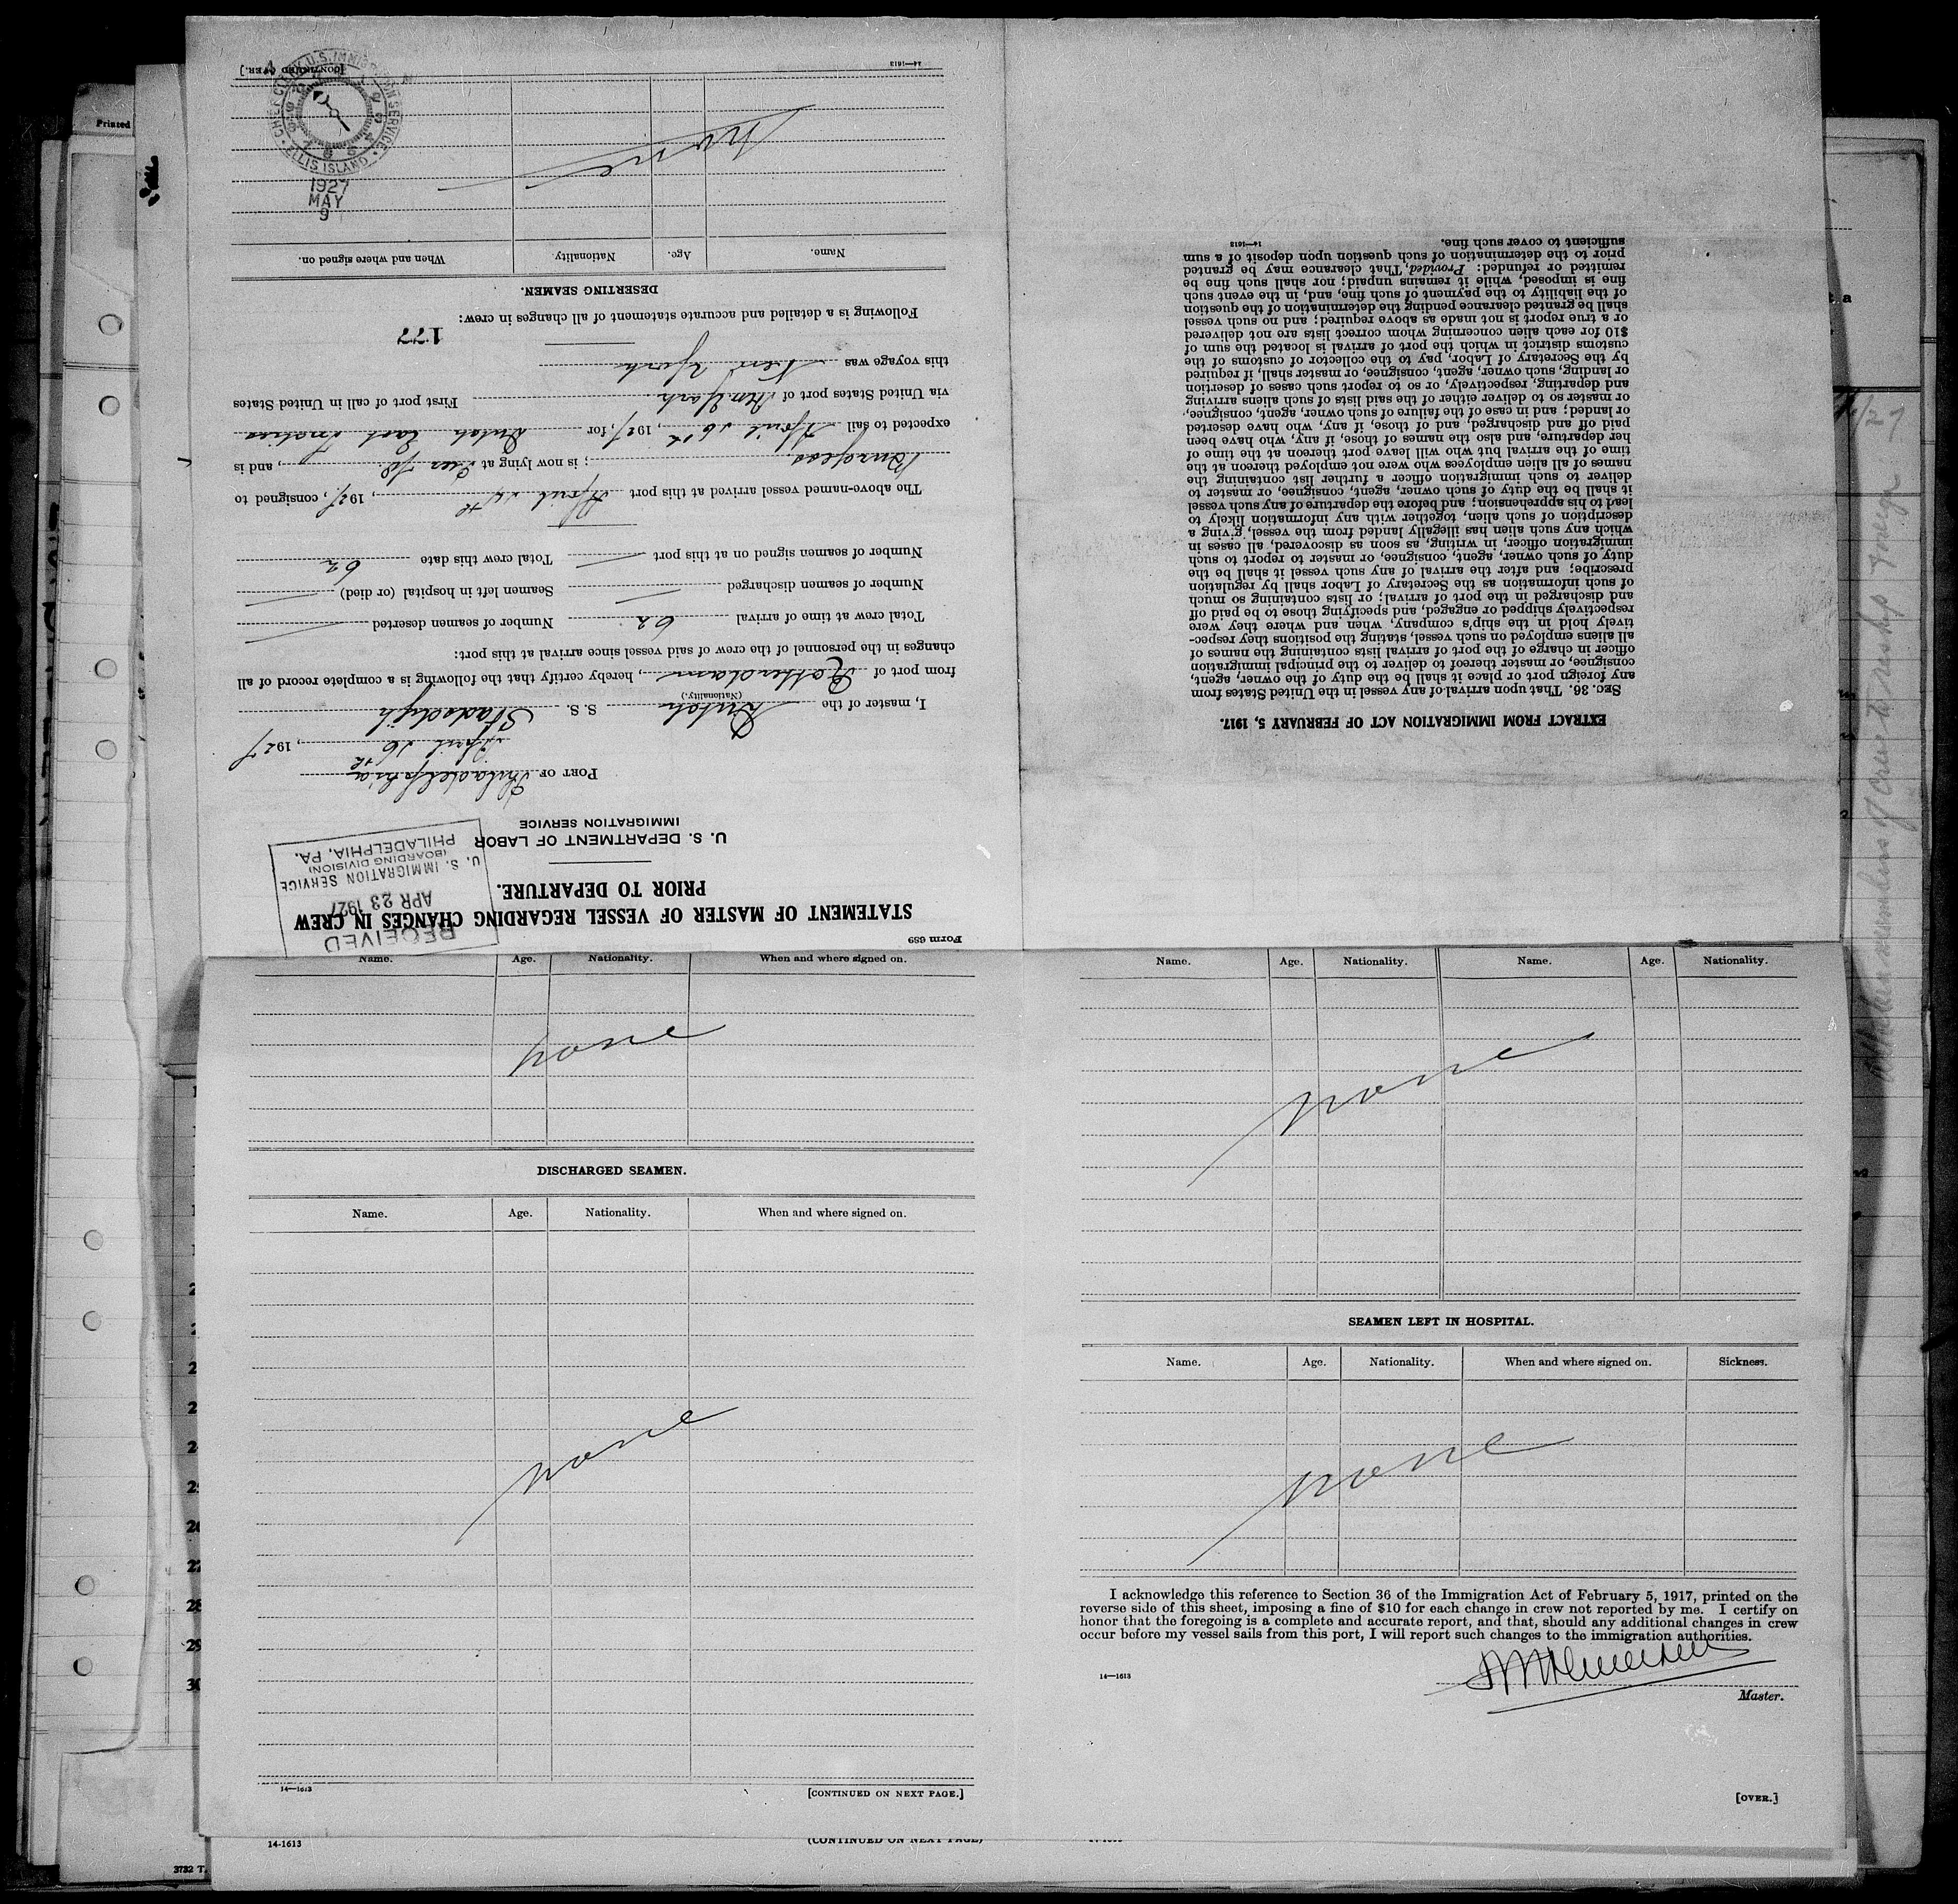 Form 689
STATEMENT OF MASTER OF VESSEL REGARDING CHANGES IN CREW
PRIOR TO DEPARTURE.
RECEIVED
APR 23 1927
U. S. IMMIGRATION SERVICE
(BOARDING DIVISION)
PHILADELPHIA, PA.
U. S. DEPARTMENT OF LABOR
IMMIGRATION SERVICE
PORT OF Philadelphia
April 26th, 1927
I, master of the Dutch S. S. Stadsdyk
(Nationality.)
from port of Rotterdam, hereby certify that the following is a complete record of all
changes in the personnel of the crew of said vessel since arrival at this port:
Total crew at time of arrival 62 Number of seamen deserted
Number of seamen discharged Seamen left in hospital (or died)
Number of seamen signed on at this port Total crew this date 62
The above-named vessel arrived at this port April 24th, 1927, consigned to
Burgess; is now lying at Pier 78, and is
expected to sail April 26th, 1927, for Dutch East Indies
via United States port of New York First port of call in United States
this voyage was New York
177
Following is a detailed and accurate statement of all changes in crew:
DESERTING SEAMEN.
Name. Age. Nationality. When and where signed on.
None
14—1613
[CONTINUED OVER.]
CHIEF CLERK U.S. IMMIGRATION SERVICE
ELLIS ISLAND
1927
MAY
9
EXTRACT FROM IMMIGRATION ACT OF FEBRUARY 5, 1917.
SEC. 36. That upon arrival of any vessel in the United States from
any foreign port or place it shall be the duty of the owner, agent,
consignee, or master thereof to deliver to the principal immigration
officer in charge of the port of arrival lists containing the names of
all aliens employed on such vessel, stating the positions they respec-
tively hold in the ship's company, when and where they were
respectively shipped or engaged, and specifying those to be paid off
and discharged in the port of arrival; or lists containing so much
of such information as the Secretary of Labor shall by regulation
prescribe; and after the arrival of any such vessel it shall be the
duty of such owner, agent, consignee, or master to report to such
immigration officer, in writing, as soon as discovered, all cases in
which any such alien has illegally landed from the vessel, giving a
description of such alien, together with any information likely to
lead to his apprehension; and before the departure of any such vessel
it shall be the duty of such owner, agent, consignee, or master to
deliver to such immigration officer a further list containing the
names of all alien employees who were not employed thereon at the
time of the arrival but who will leave port thereon at the time of
her departure, and also the names of those, if any, who have been
paid off and discharged, and of those, if any, who have deserted
or landed; and in case of the failure of such owner, agent, consignee,
or master so to deliver either of the said lists of such aliens arriving
and departing, respectively, or so to report such cases of desertion
or landing, such owner, agent, consignee, or master shall, if required
by the Secretary of Labor, pay to the collector of customs of the
customs district in which the port of arrival is located the sum of
$10 for each alien concerning whom correct lists are not delivered
or a true report is not made as above required; and no such vessel
shall be granted clearance pending the determination of the question
of the liability to the payment of such fine, and, in the event such
fine is imposed, while it remains unpaid; nor shall such fine be
remitted or refunded: Provided, That clearance may be granted
prior to the determination of such question upon deposit of a sum
sufficient to cover such fine.
14—1613
Name. Age. Nationality. When and where signed on.
none
DISCHARGED SEAMEN.
Name. Age. Nationality. When and where signed on.
none
14—1613
[CONTINUED ON NEXT PAGE.]
Name. Age. Nationality. Name. Age. Nationality.
none
SEAMEN LEFT IN HOSPITAL.
Name. Age. Nationality. When and where signed on. Sickness.
none
I acknowledge this reference to Section 36 of the Immigration Act of February 5, 1917, printed on the
reverse side of this sheet, imposing a fine of $10 for each change in crew not reported by me. I certify on
honor that the foregoing is a complete and accurate report, and that, should any additional changes in crew
occur before my vessel sails from this port, I will report such changes to the immigration authorities.
14—1613
Master.
[OVER.]
14-1613
(CONTINUED ON NEXT PAGE)
3732 T.
Printed
28
29
30